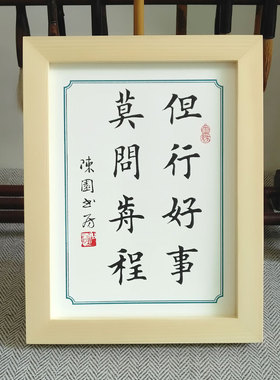 但行好事
莫問歬程
陳園書房